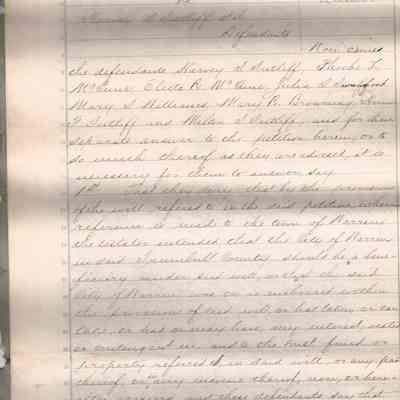 Harvey S Sutliff et al
Defendants
Now comes
the defendants Harvey S Sutliff, Phoebe L
McCune Clyde R McCune, Julia S
Mary S Williams, Mary R. Browning,
P Sutliff and Milton I Sutliff, and for their
separate answer to the petition herein, or to
so much thereof as they are advised, it is
necessary for them to answer, say
1st That they deny that by the provisions
of the will referred to in the said petition wherein
reference is made to the town of Warren
the testator intended that the City of Warren
in said Trumbull County should be a bene-
ficiary under said will, or that the said
City of Warren was or is embraced within
the provisions of said will, or has taken or can
take, or has or may have any interest, vested
or contingent in, and to the trust fund or
property referred to, in said will, or any part
thereof, in any manner thereof, now, or here-
after and these defendants say that